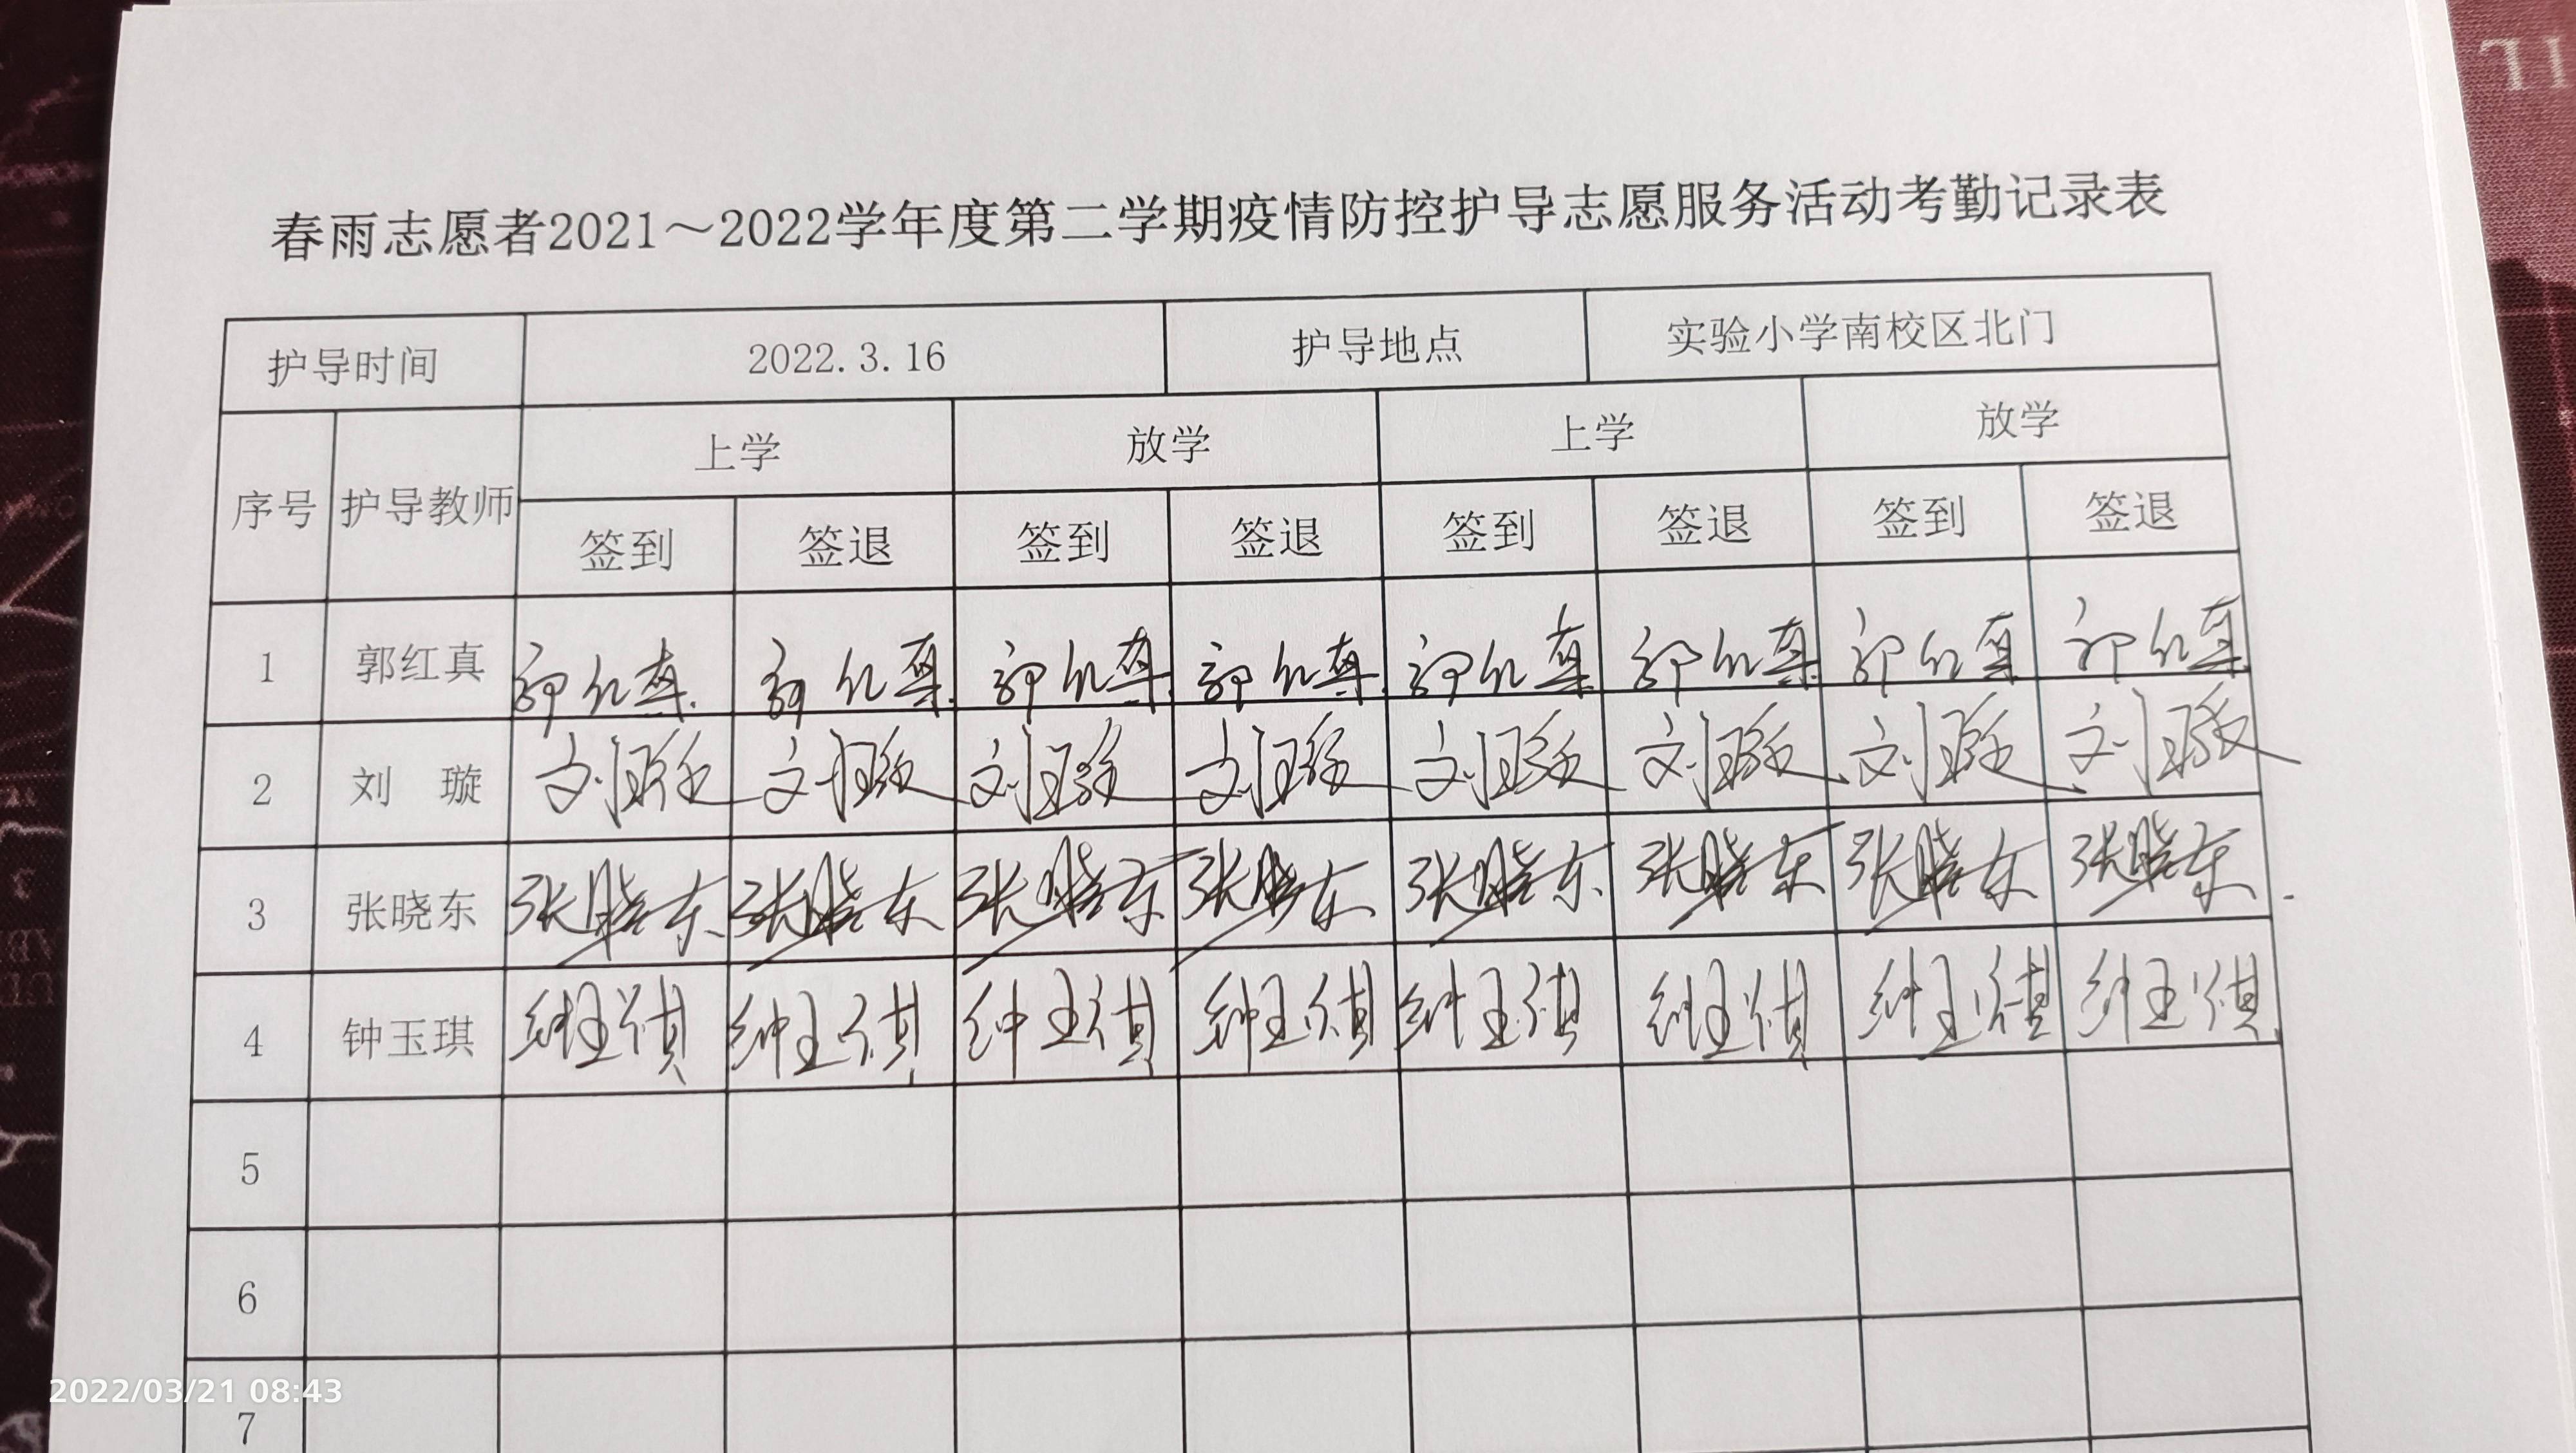 春雨志愿者2021～2022学年度第二学期疫情防控护导志愿服务活动考勤记录表
护导时间 2022.3.16 护导地点 实验小学南校区北门
序号 护导教师 上学 放学 上学 放学
签到 签退 签到 签退 签到 签退 签到 签退
1 郭红真 郭红真 郭红真 郭红真 郭红真 郭红真 郭红真 郭红真 郭红真
2 刘 璇 刘璇 刘璇 刘璇 刘璇 刘璇 刘璇 刘璇 刘璇
3 张晓东 张晓东 张晓东 张晓东 张晓东 张晓东 张晓东 张晓东 张晓东
4 钟玉琪 钟玉琪 钟玉琪 钟玉琪 钟玉琪 钟玉琪 钟玉琪 钟玉琪 钟玉琪
5
6
7
2022/03/21 08:43